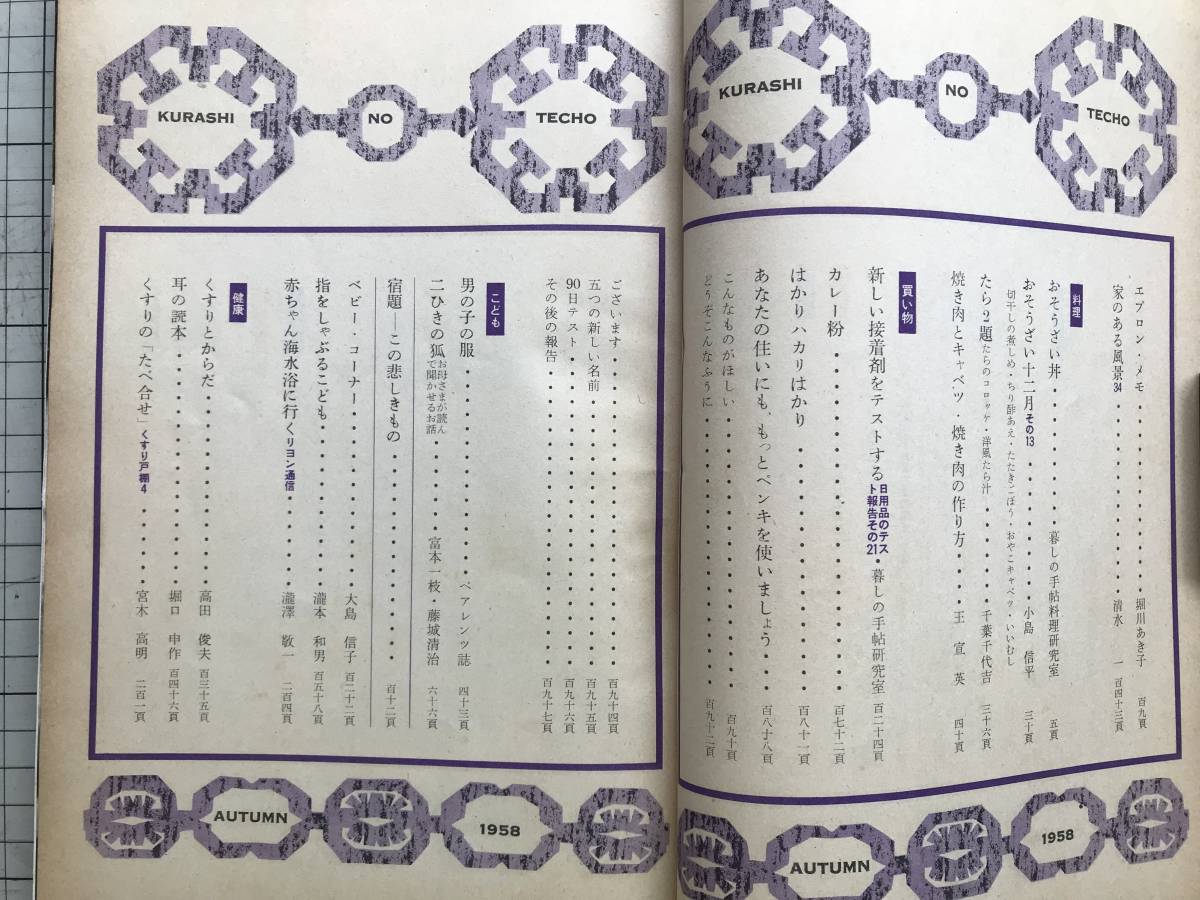 KURASHI NO TECHO
エプロン・メモ・・・・・・・・・・堀川あき子 百九頁
家のある風景34・・・・・・・・・・清水 一 百四十三頁
料理
おそうざい丼・・・・・・・・暮しの手帖料理研究室 五頁
おそうざい十二月その13・・・・・・・・小島 信平 三十頁
切干しの煮しめ・ちり酢あえ・たたきごぼう・おやこキャベツ・いいむし
たら2題たらのコロッケ・洋風たら汁・・・・・・千葉千代吉 三十六頁
焼き肉とキャベツ・焼き肉の作り方・・・・王 宣 英 四十頁
買い物
新しい接着剤をテストする日用品のテスト報告その21・暮しの手帖研究室 百二十四頁
カレー粉・・・・・・・・・・百七十二頁
はかりハカリはかり・・・・・・・・・・百八十一頁
あなたの住いにも、もっとペンキを使いましょう・・・・百八十八頁
こんなものがほしい・・・・・・・・・・百九十頁
どうぞこんなふうに・・・・・・・・・・百九十二頁
AUTUMN 1958
KURASHI NO TECHO
ございます・・・・・・・・・・百九十四頁
五つの新しい名前・・・・・・・・・・百九十五頁
90日テスト・・・・・・・・・・百九十六頁
その後の報告・・・・・・・・・・百九十七頁
こども
男の子の服・・・・・・・・・・ペアレンツ誌 四十三頁
二ひきの狐お母さまが読んで聞かせるお話・・・・富本一枝・藤城清治 六十六頁
宿題―この悲しきもの・・・・・・・・百十二頁
ベビー・コーナー・・・・・・・・・・大島 信子 百二十二頁
指をしゃぶるこども・・・・・・・・瀧本 和男 百五十八頁
赤ちゃん海水浴に行くリヨン通信・・・・・・瀧澤 敬一 二百四頁
健康
くすりとからだ・・・・・・・・・・高田 俊夫 百三十五頁
耳の読本・・・・・・・・・・堀口 申作 百四十六頁
くすりの「たべ合せ」くすり戸棚4・・・・・・宮木 高明 二百一頁
AUTUMN 1958